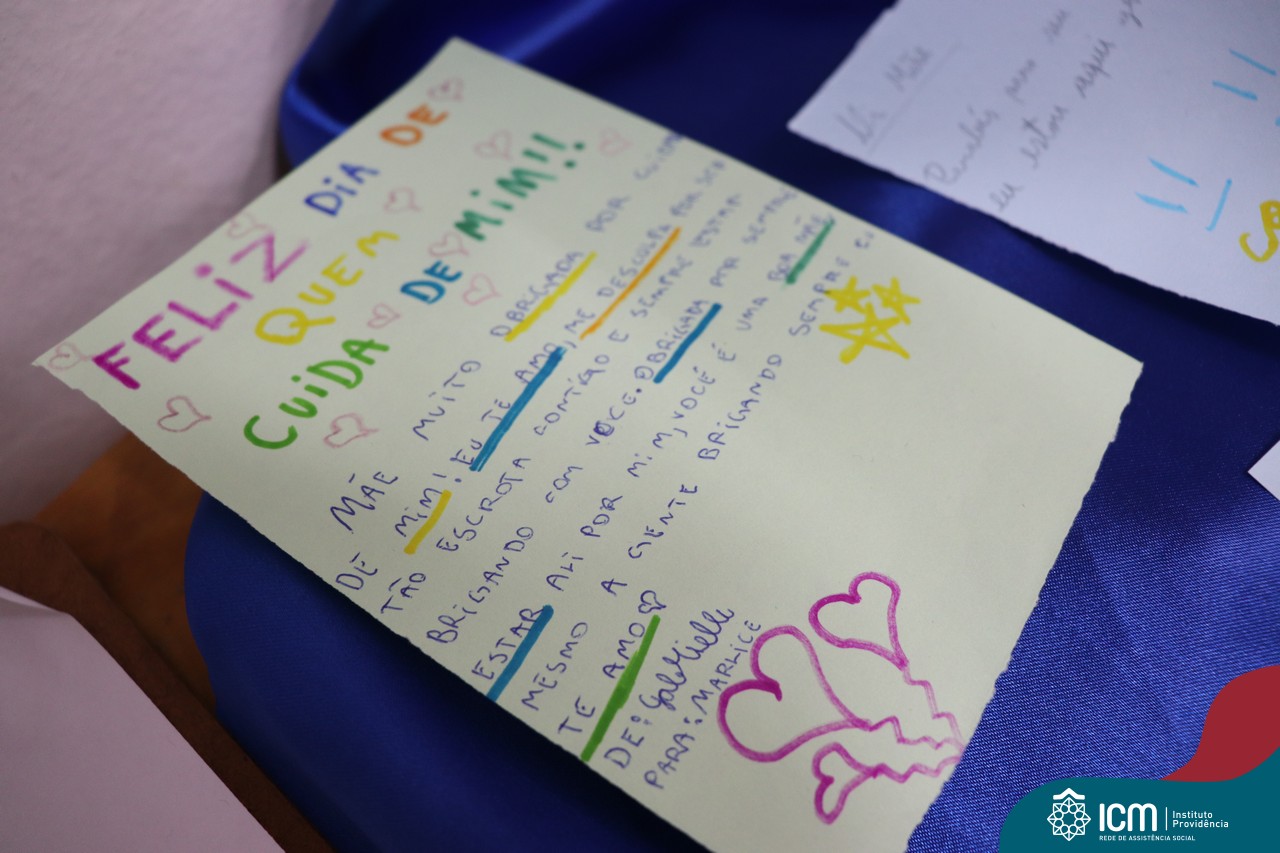 FELIZ DIA DE
QUEM
CUIDA DE MIM!!
DE MÃE MUITO OBRIGADA POR
MIM! EU TE AMO, ME DESCULPA POR SER
TÃO ESCROTA CONTIGO E SEMPRE ESTAR
BRIGANDO COM VOCE. OBRIGADA POR SEMPRE
ESTAR ALI POR MIM, VOCÉ É UMA BOA MÃE
MESMO A GENTE BRIGANDO SEMPRE EU
TE AMO
DE: Gabrielle
PARA: MARLICE
eu estou aqui
ICM
Instituto
Providência
REDE DE ASSISTÊNCIA SOCIAL